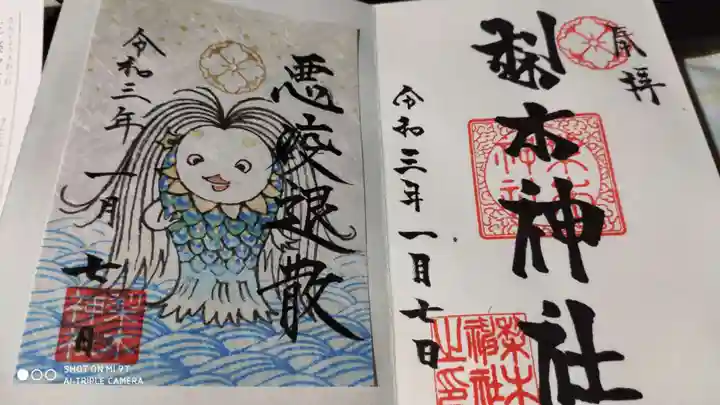 悪疫退散
令和三年
一月
七日
奉拝
梨木神社
令和三年一月七日
SHOT ON MI 9T
AI TRIPLE CAMERA